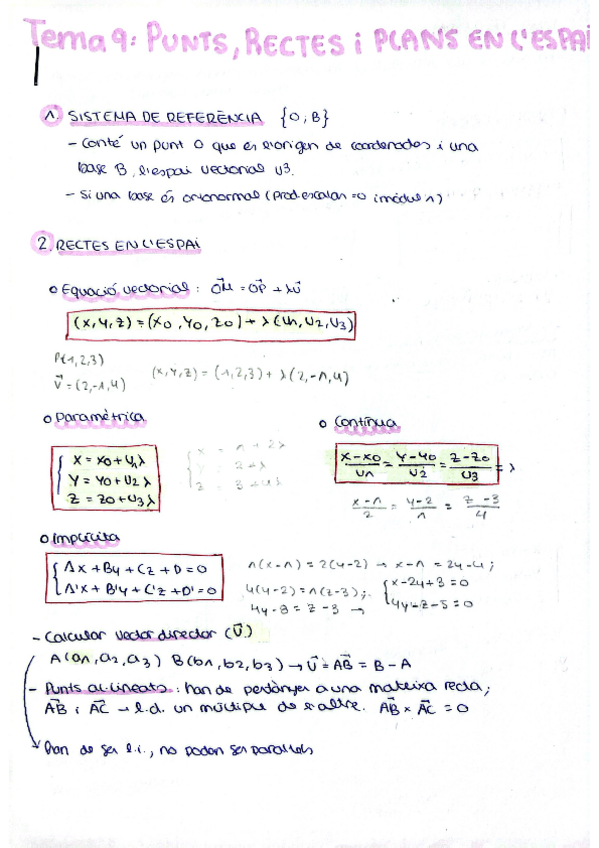 Tema 9: PUNTS, RECTES i PLANS EN L'ESPAI
1. SISTEMA DE REFERÈNCIA {O; B}
- Conté un punt O que és l'origen de coordenades i una
base B, l'espai vectorial V3.
- Si una base és ortonormal (Prod.escalar=0 i mòdul 1)
2. RECTES EN L'ESPAI
o Equació vectorial : OM = OP + λU
(x, y, z) = (x0, y0, z0) + λ(u1, u2, u3)
P(1,2,3)
V = (2,-1,4) (x,y,z) = (1,2,3) + λ(2,-1,4)
o Paramètrica o Contínua
x = x0 + u1λ
y = y0 + u2λ
z = z0 + u3λ
x = 1 + 2λ
y = 2 + λ
z = 3 + 4λ
x-x0/u1 = y-y0/u2 = z-z0/u3 = λ
x-1/2 = y-2/1 = z-3/4
o Implícita
Ax + By + Cz + D = 0
A'x + B'y + C'z + D' = 0
1(x-1) = 2(y-2) → x-1 = 2y-4;
4(y-2) = 1(z-3);
4y-8 = z-3 →
x-2y+3 = 0
4y-z-5 = 0
- Calcular vector director (V.)
A(a1, a2, a3) B(b1, b2, b3) → V = AB = B - A
- Punts al·lineats : han de pertànyer a una mateixa recta;
AB i AC → l.d. un múltiple de l'altre. AB × AC = 0
Han de ser l.i., no poden ser paral·lels